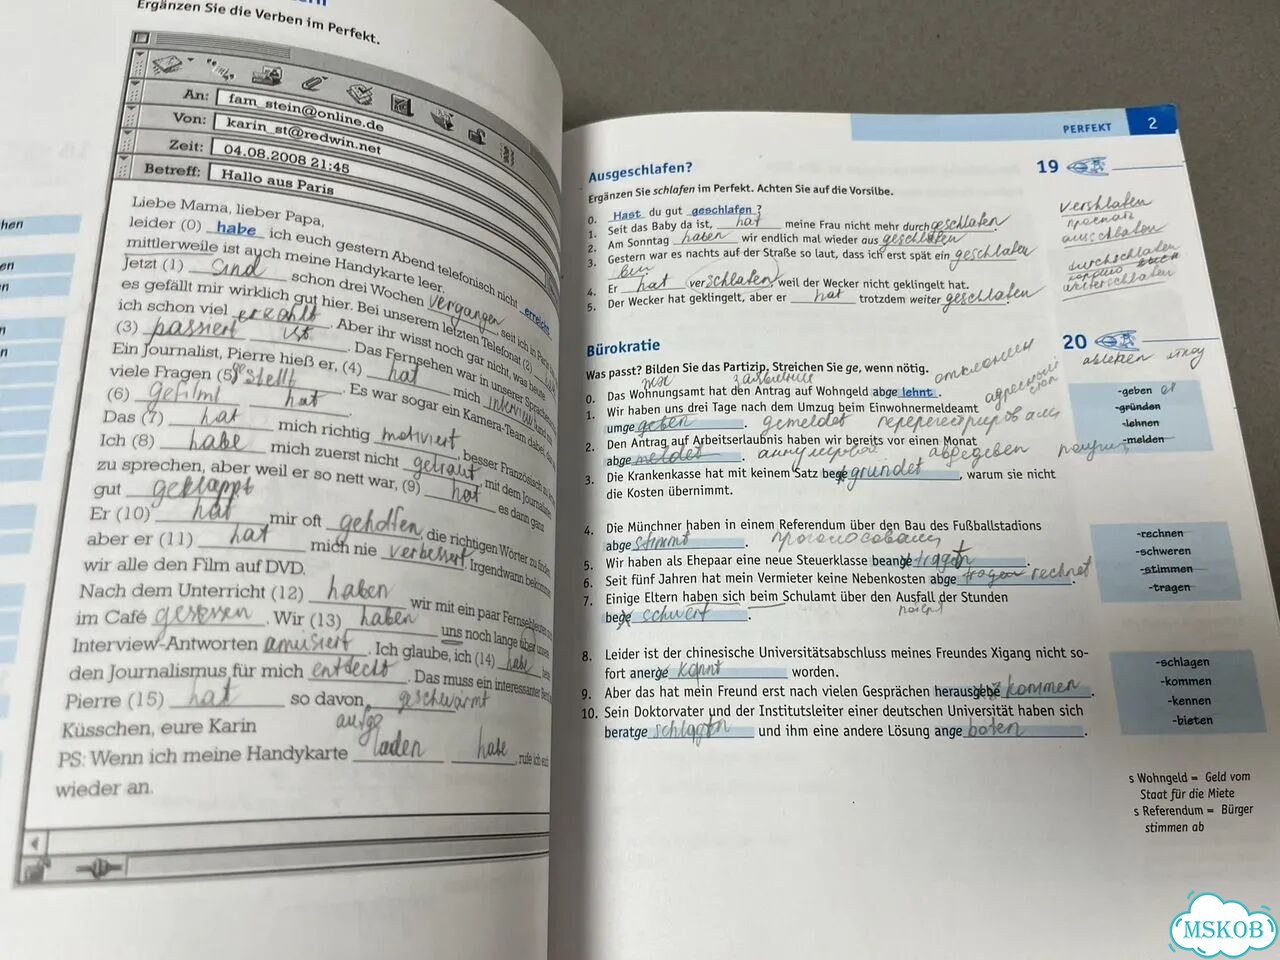 Ergänzen Sie die Verben im Perfekt.
An: fam_stein@online.de
Von: karin_st@redwin.net
Zeit: 04.08.2008 21:45
Betreff: Hallo aus Paris
Liebe Mama, lieber Papa,
leider (0) habe ich euch gestern Abend telefonisch nicht erreicht,
mittlerweile ist auch meine Handykarte leer.
Jetzt (1) sind schon drei Wochen vergangen, seit ich in
es gefällt mir wirklich gut hier. Bei unserem letzten Telefonat (2)
ich schon viel erzählt. Aber ihr wisst noch gar nicht, was heute
(3) passiert ist. Das Fernsehen war in unserer
Ein Journalist, Pierre hieß er, (4) hat mich
viele Fragen (5) gestellt. Es war sogar ein Kamera-Team dabei,
(6) gefilmt hat.
Das (7) hat mich richtig motiviert, besser Französisch zu
Ich (8) habe mich zuerst nicht getraut, mit dem Journalisten
zu sprechen, aber weil er so nett war, (9) hat es dann ganz
gut geklappt
Er (10) hat mir oft geholfen, die richtigen Wörter zu finden,
aber er (11) hat mich nie verbessert. Irgendwann bekommen
wir alle den Film auf DVD.
Nach dem Unterricht (12) haben wir mit ein paar
im Café gesessen. Wir (13) haben uns noch lange über unsere
Interview-Antworten amüsiert. Ich glaube, ich (14) habe
den Journalismus für mich entdeckt. Das muss ein interessanter
Pierre (15) hat so davon geschwärmt
Küsschen, eure Karin
aufge
PS: Wenn ich meine Handykarte laden habe, rufe ich euch
wieder an.
PERFEKT 2
Ausgeschlafen? 19
Ergänzen Sie schlafen im Perfekt. Achten Sie auf die Vorsilbe.
0. Hast du gut geschlafen?
1. Seit das Baby da ist, hat meine Frau nicht mehr durchgeschlafen
2. Am Sonntag haben wir endlich mal wieder ausgeschlafen
3. Gestern war es nachts auf der Straße so laut, dass ich erst spät eingeschlafen
bin
4. Er hat (verschlafen), weil der Wecker nicht geklingelt hat.
5. Der Wecker hat geklingelt, aber er hat trotzdem weitergeschlafen
verschlafen
проспать
ausschlafen
durchschlafen
weiterschlafen
Bürokratie 20
Was passt? Bilden Sie das Partizip. Streichen Sie ge, wenn nötig.
0. Das Wohnungsamt hat den Antrag auf Wohngeld abgelehnt.
1. Wir haben uns drei Tage nach dem Umzug beim Einwohnermeldeamt
umgegeben. gemeldet
2. Den Antrag auf Arbeitserlaubnis haben wir bereits vor einem Monat
abgemeldet. abgegeben
3. Die Krankenkasse hat mit keinem Satz begegründet, warum sie nicht
die Kosten übernimmt.
4. Die Münchner haben in einem Referendum über den Bau des Fußballstadions
abgestimmt.
5. Wir haben als Ehepaar eine neue Steuerklasse beangetragt.
6. Seit fünf Jahren hat mein Vermieter keine Nebenkosten abgetragen rechnet.
7. Einige Eltern haben sich beim Schulamt über den Ausfall der Stunden
begeschwert.
8. Leider ist der chinesische Universitätsabschluss meines Freundes Xigang nicht so-
fort anergekannt worden.
9. Aber das hat mein Freund erst nach vielen Gesprächen herausgekommen.
10. Sein Doktorvater und der Institutsleiter einer deutschen Universität haben sich
beratgeschlagen und ihm eine andere Lösung angeboten.
-geben
-gründen
-lehnen
-melden
-rechnen
-schweren
-stimmen
-tragen
-schlagen
-kommen
-kennen
-bieten
s Wohngeld = Geld vom
Staat für die Miete
s Referendum = Bürger
stimmen ab
MSKOB